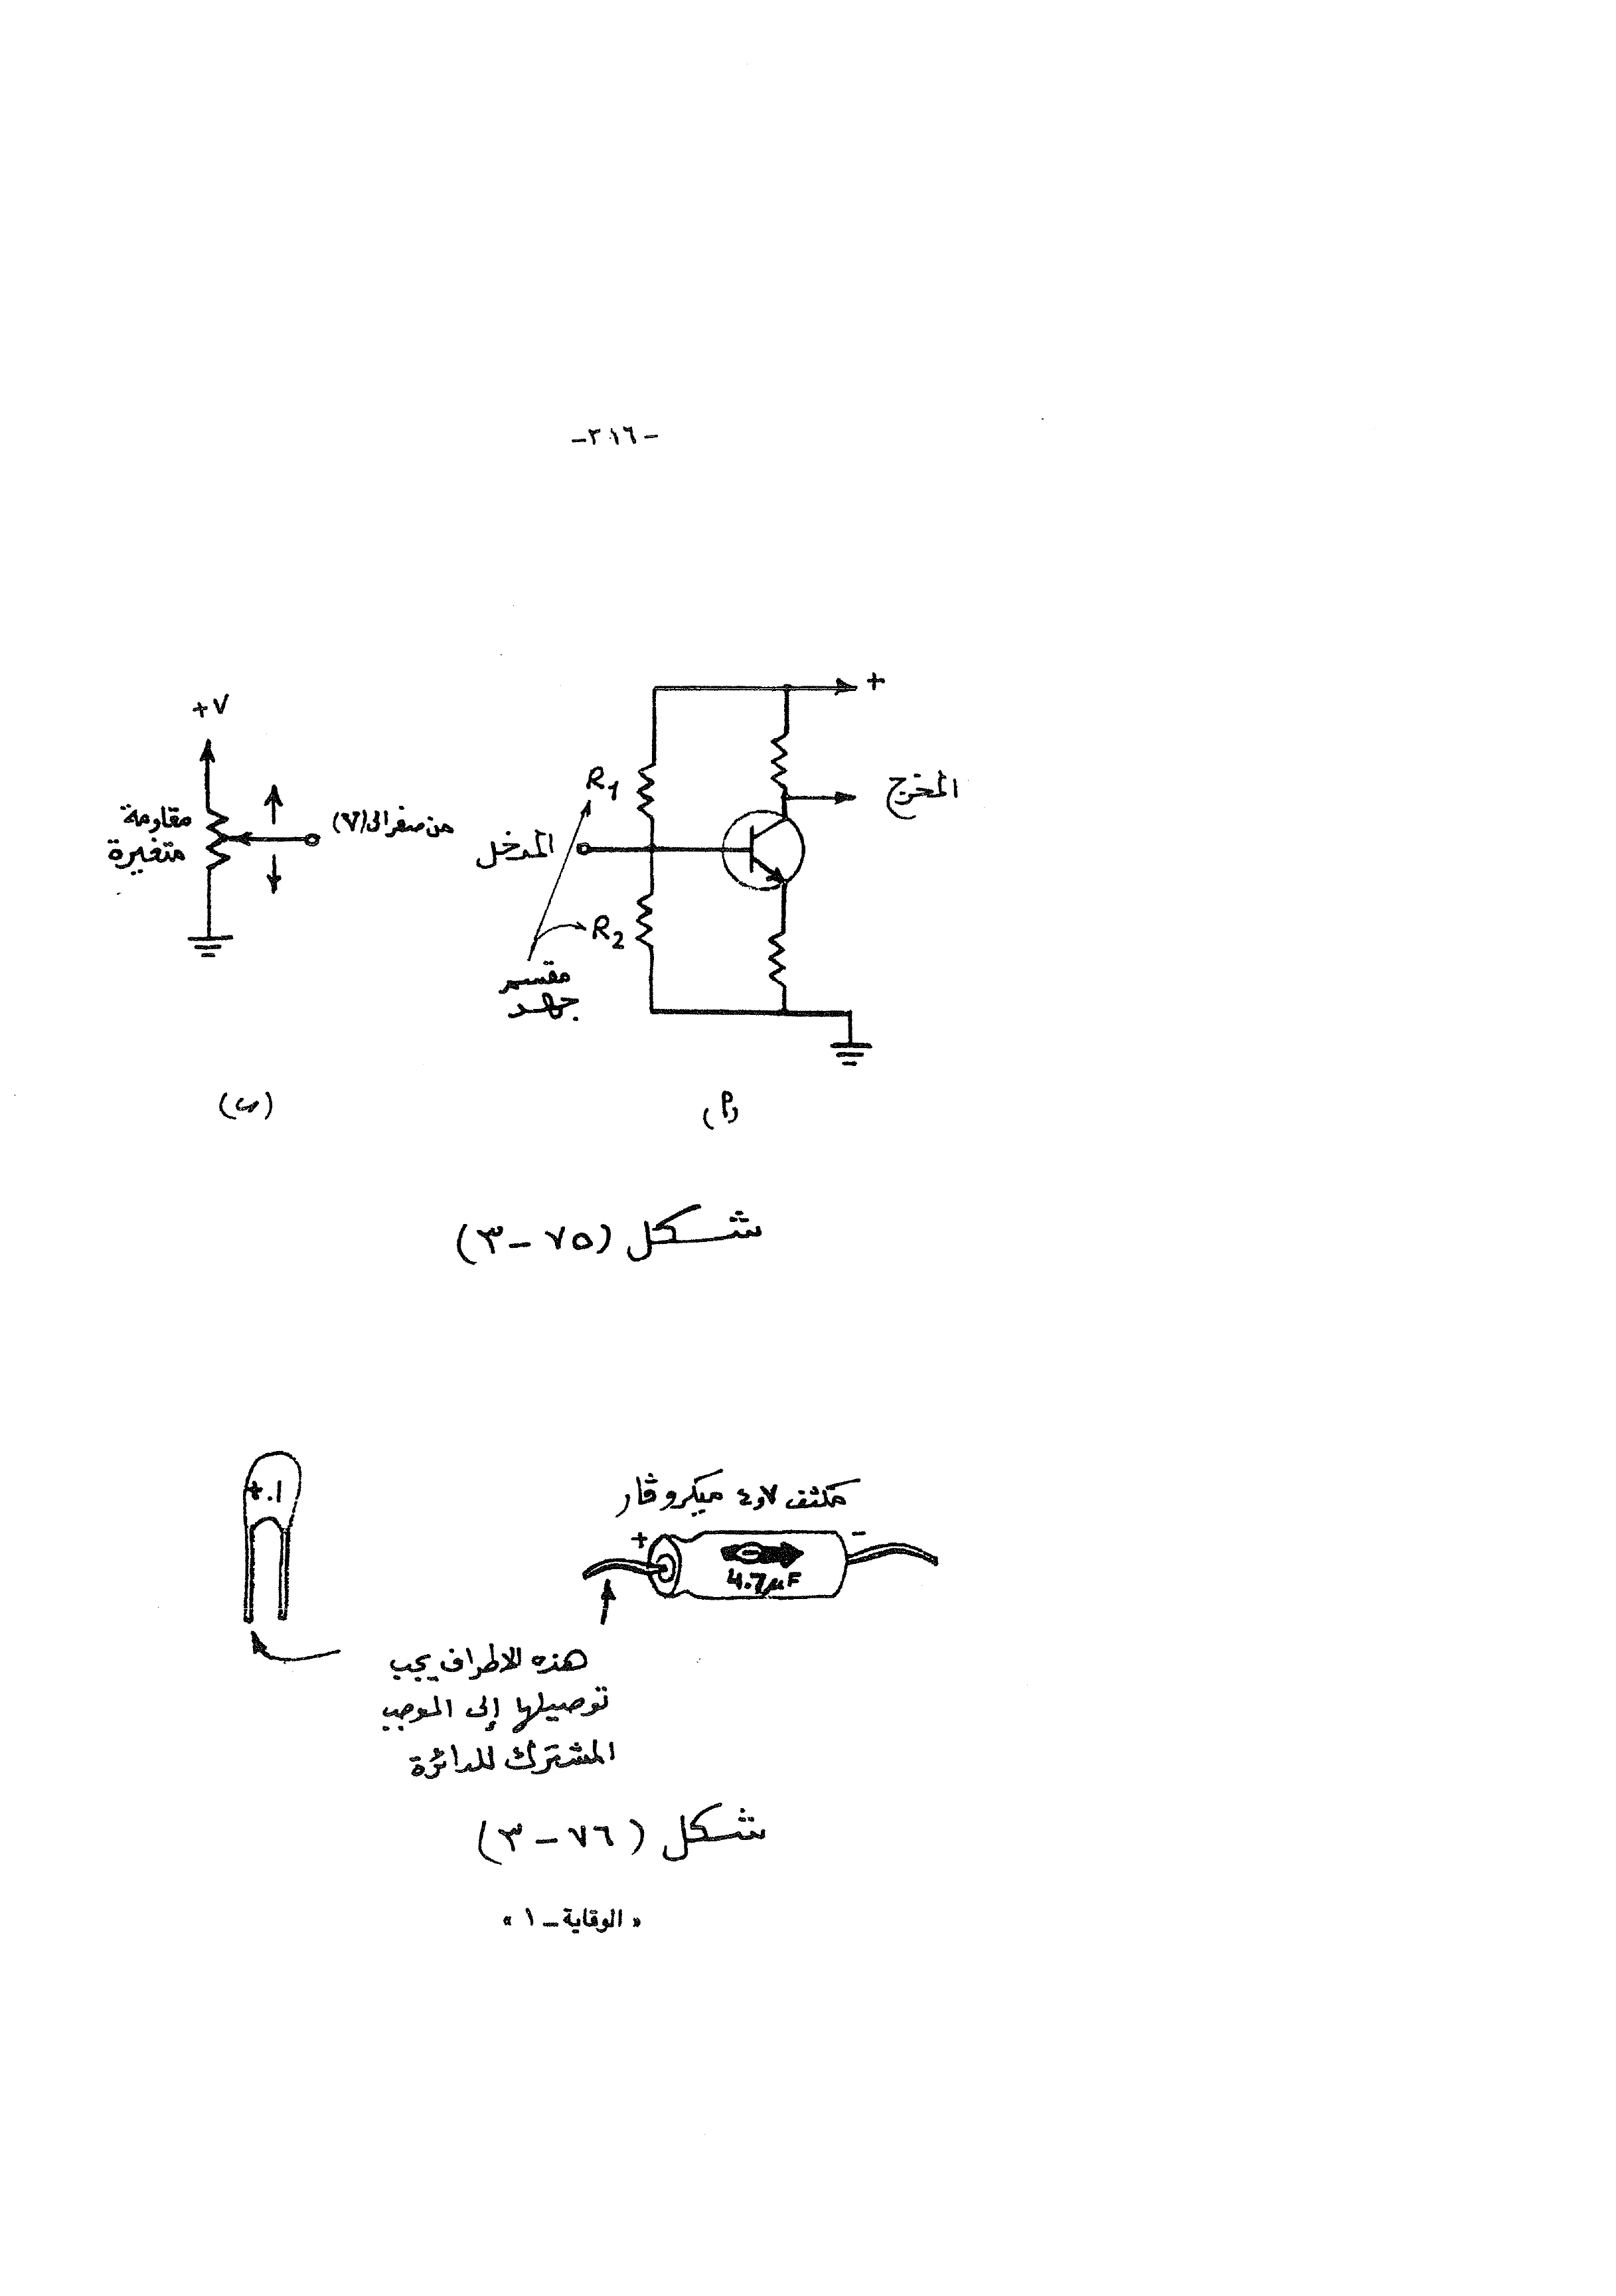 -٣١٦-
+
+V
R1
المخرج
مقاومة
متغيرة
من صفر الى (V)
المدخل
R2
مقسم
جهد
(أ)
(ب)
شكل (٧٥ - ٣)
+.1
مكثف ٤٫٧ ميكروڤار
+
-
4.7µF
هذه الاطراف يجب
توصيلها إلى الموجب
المشترك للدائرة
شكل (٧٦ - ٣)
« الوقاية - ١ »